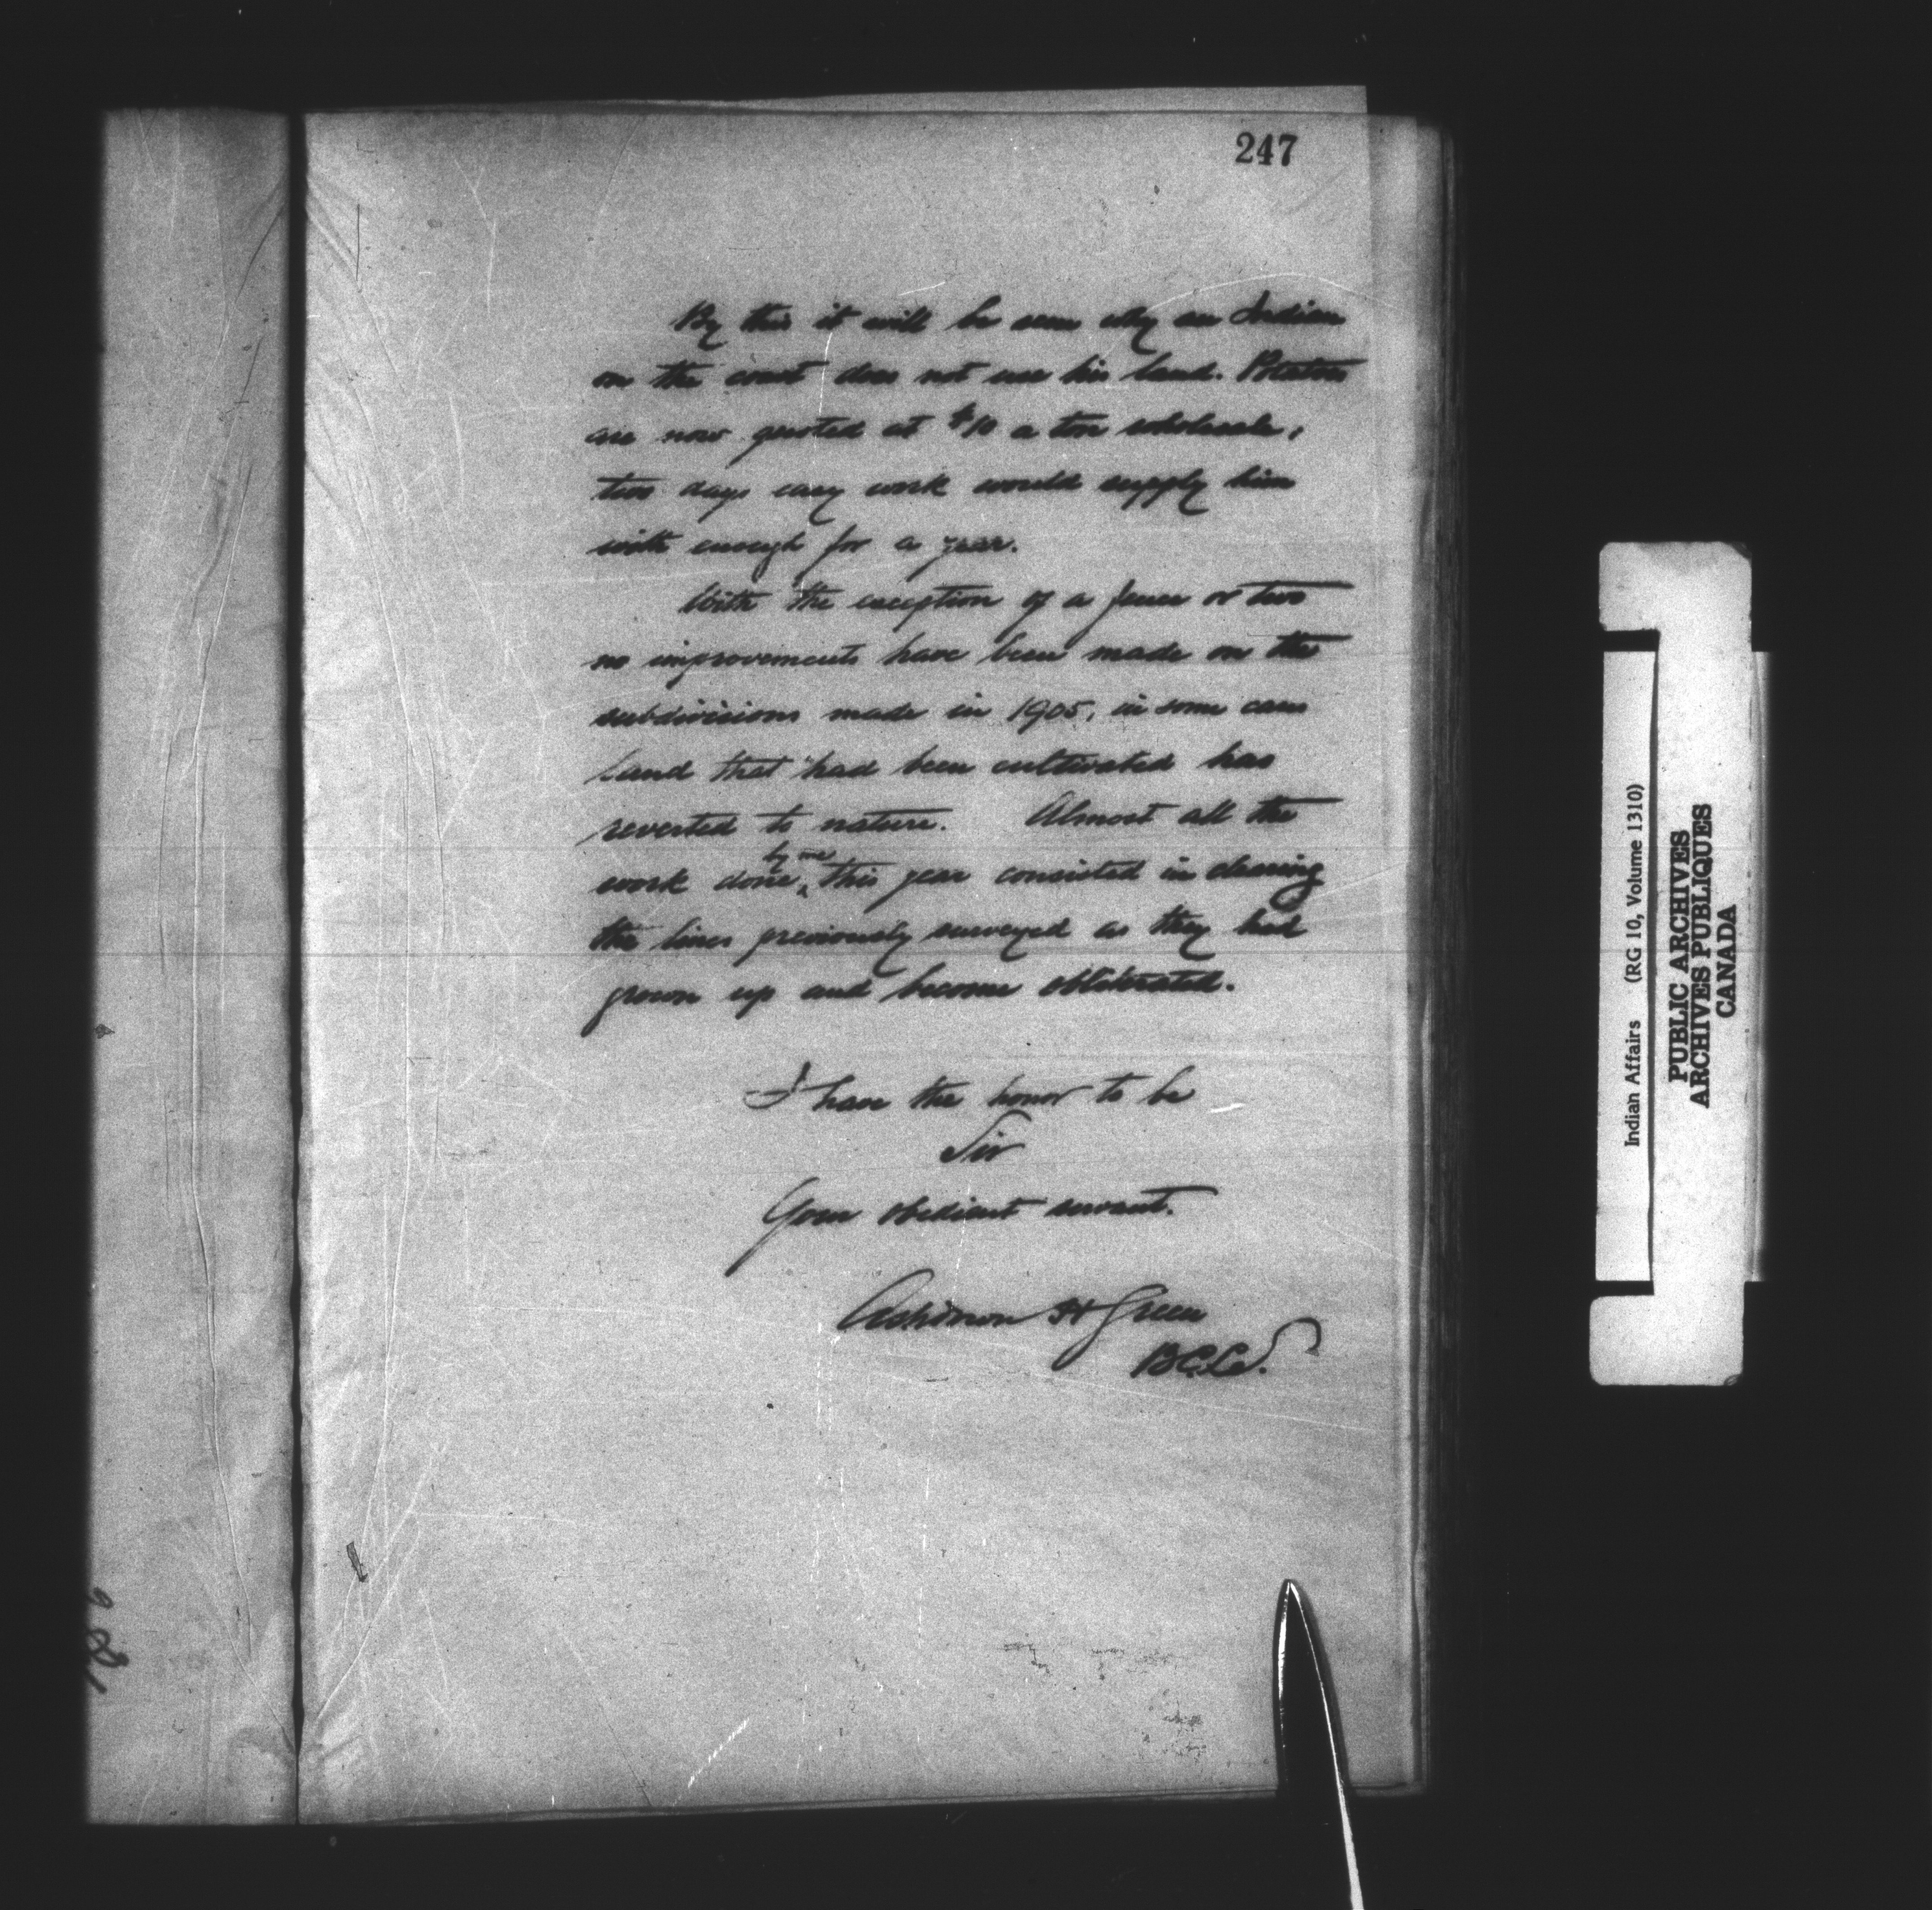 247
By this it will be seen why an Indian
on the coast does not use his land. Potatoes
are now quoted at $10 a ton wholesale,
two days easy work would supply him
with enough for a year.
With the exception of a fence or two
no improvements have been made on the
subdivisions made in 1905, in some cases
land that had been cultivated has
reverted to nature. Almost all the
by me
work done ‸ this year consisted in clearing
the lines previously surveyed as they had
grown up and become obliterated.
I have the honor to be
Sir
Your obedient servant.
Ashdown H Green
B.C.L.S.
Indian Affairs (RG 10, Volume 1310)
PUBLIC ARCHIVES
ARCHIVES PUBLIQUES
CANADA